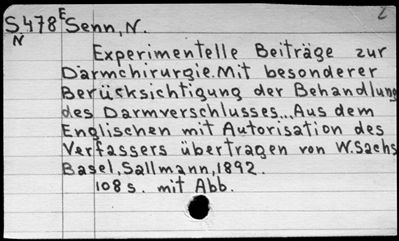 S478E Senn, N.
N
Experimentelle Beiträge zur
Darmchirurgie. Mit besonderer
Berücksichtigung der Behandlung
des Darmverschlusses... Aus dem
Englischen mit Autorisation des
Verfassers übertragen von W. Sachs
Basel, Sallmann, 1892.
108 s. mit Abb.